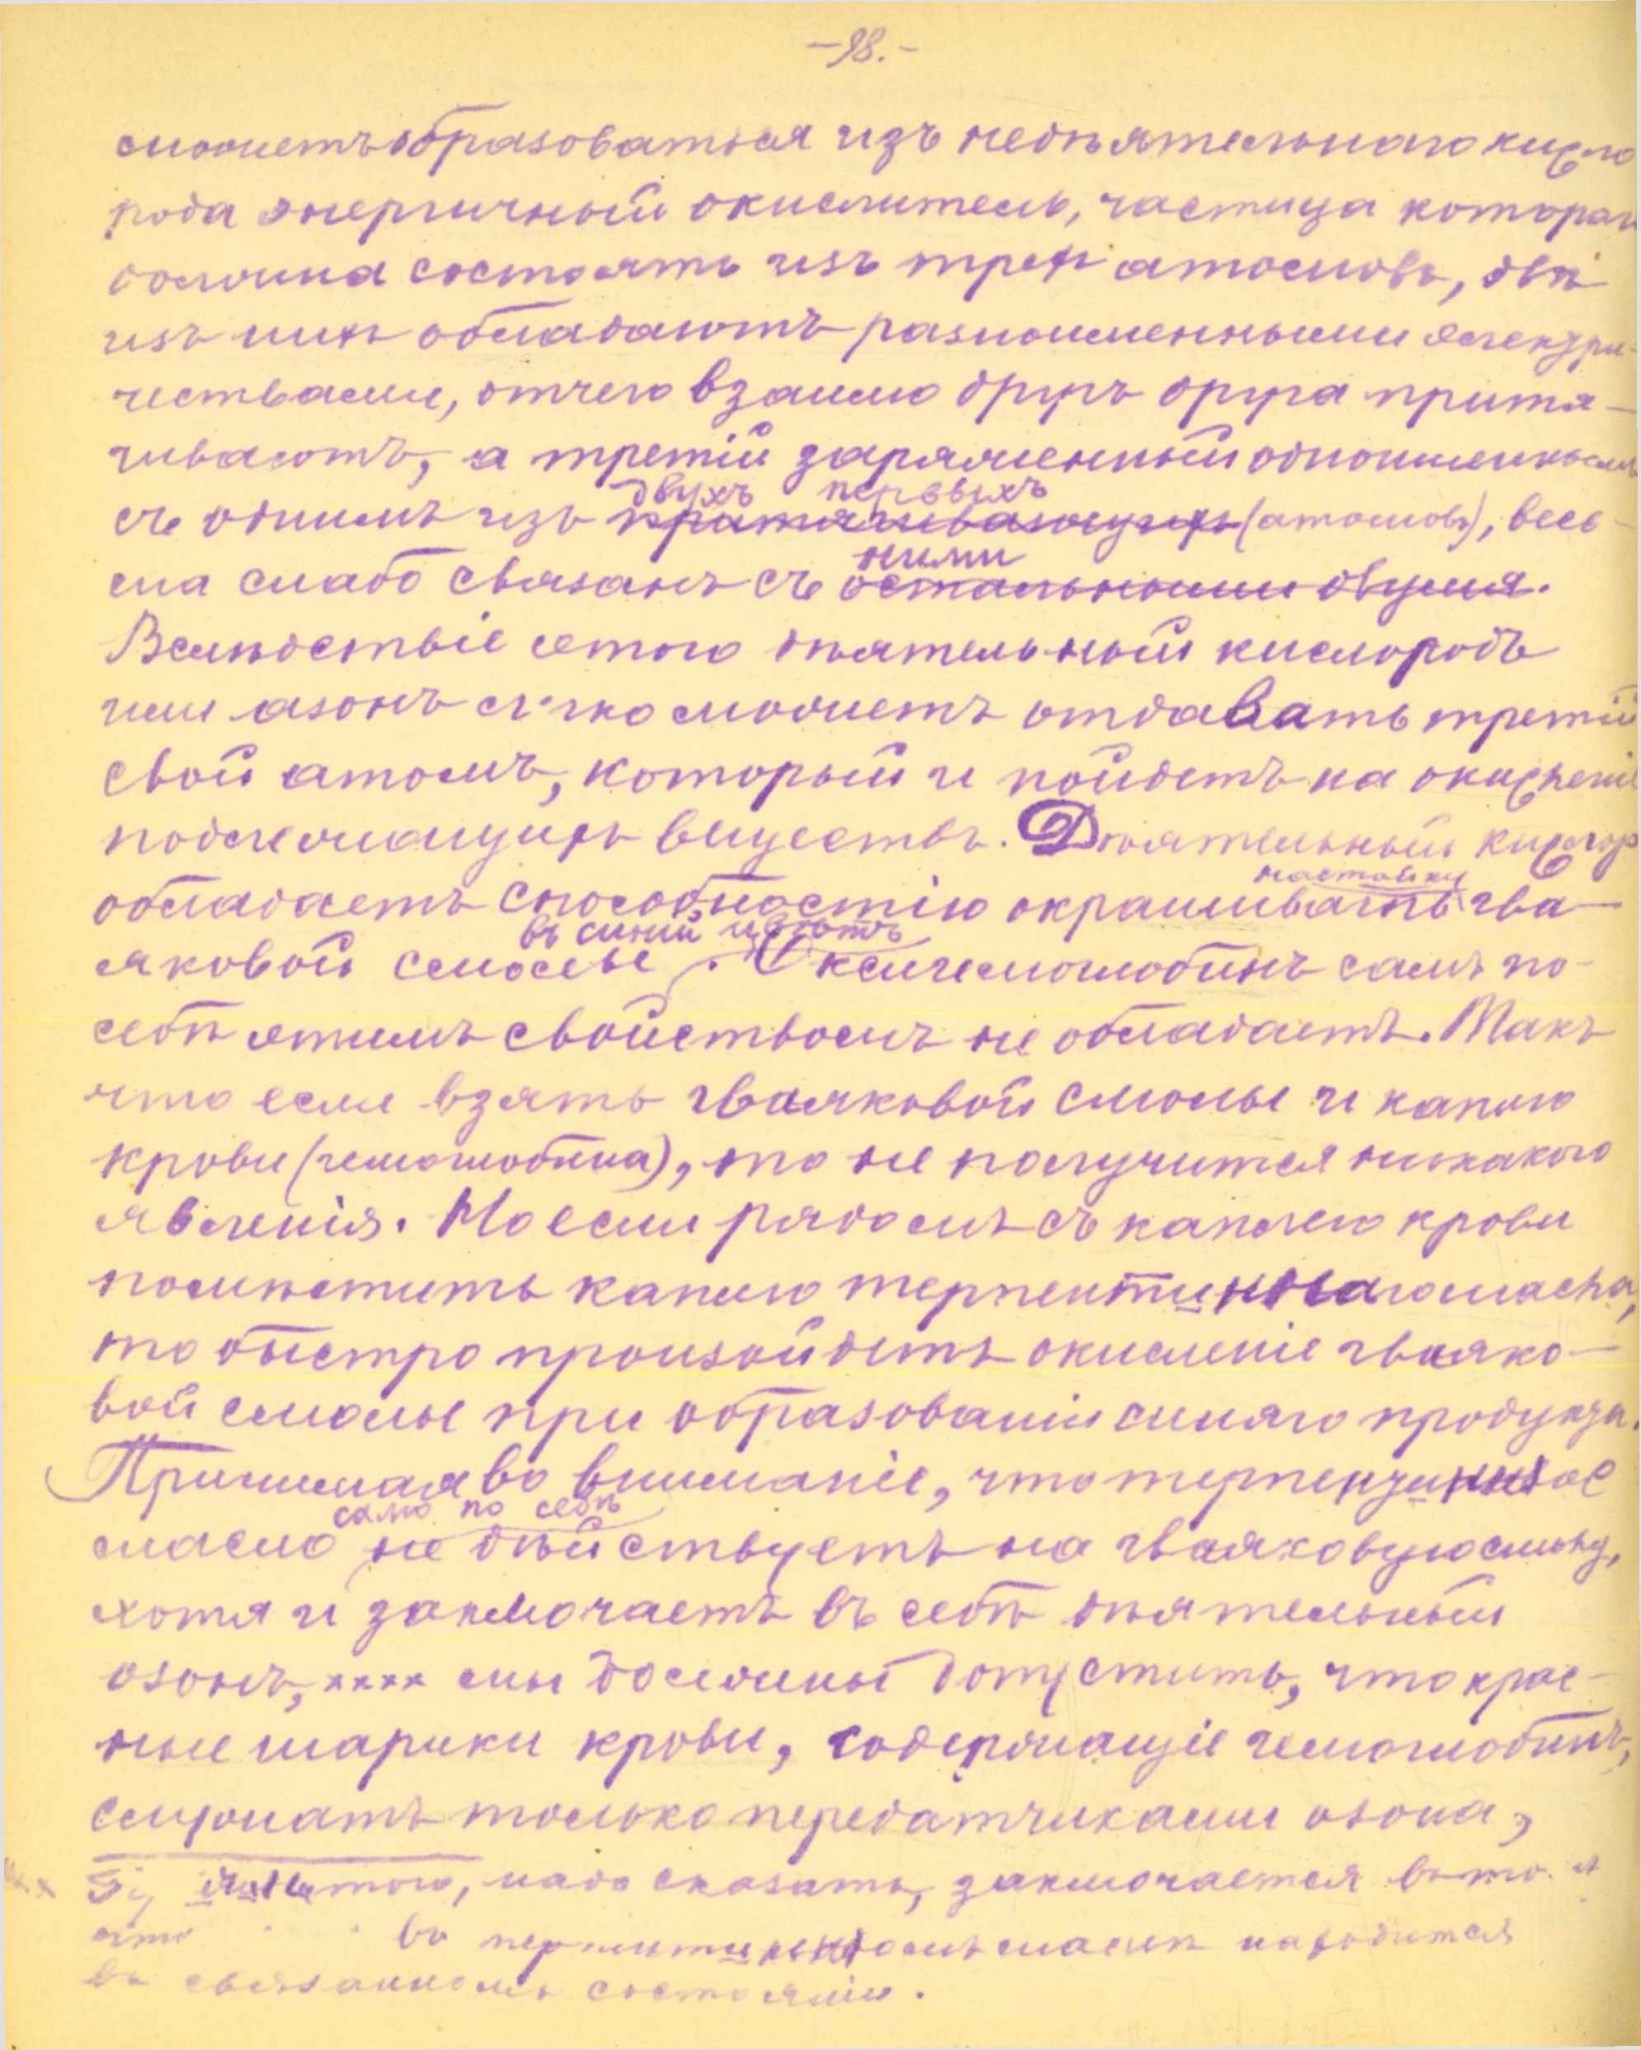 -98.-
можетъ образоваться изъ недѣятельнаго кисло
рода энергичный окислитель, частица котораго
должна состоять изъ трех атомовъ, двѣ
изъ них обладаютъ разноименными электри-
чествами, отчего взаимо другъ друга притя-
гиваютъ, а третій заряженный одноименнымъ
двухъ первыхъ
съ однимъ изъ притягивающихъ (атомовъ), весь-
ними
ма слабо связанъ съ остальными двумя.
Вслѣдствіе этого дѣятельный кислородъ
или азонъ легко можетъ отдавать третій
свой атомъ, который и пойдетъ на окисленіе
подлежащихъ веществъ. Дѣятельный кислор
настойку
обладаетъ способностію окрашивать гва-
въ синий цвѣтъ
яковой смолы. Оксигемоглобинъ самъ по-
себѣ этимъ свойствомъ не обладаетъ. Такъ
что если взять гваяковой смолы и каплю
крови (гемоглобина), то не получится никакого
явленія. Но если рядомъ съ каплею крови
помѣстить каплю терпентиннаго масла,
то быстро произойдетъ окисленіе гваяко-
вой смолы при образованіи синяго продукта.
Принимая во вниманіе, что терпентинное
само по себѣ
масло не дѣйствуетъ на гваяковую смолу,
хотя и заключаетъ въ себѣ дѣятельный
озонъ, хххх мы должны допустить, что крас-
ные шарики крови, содержащіе гемоглобинъ,
служатъ только передатчиками озона,
того, надо сказать, заключается въ то
что во терпентинномъ маслѣ находится
въ связанномъ состояніи.